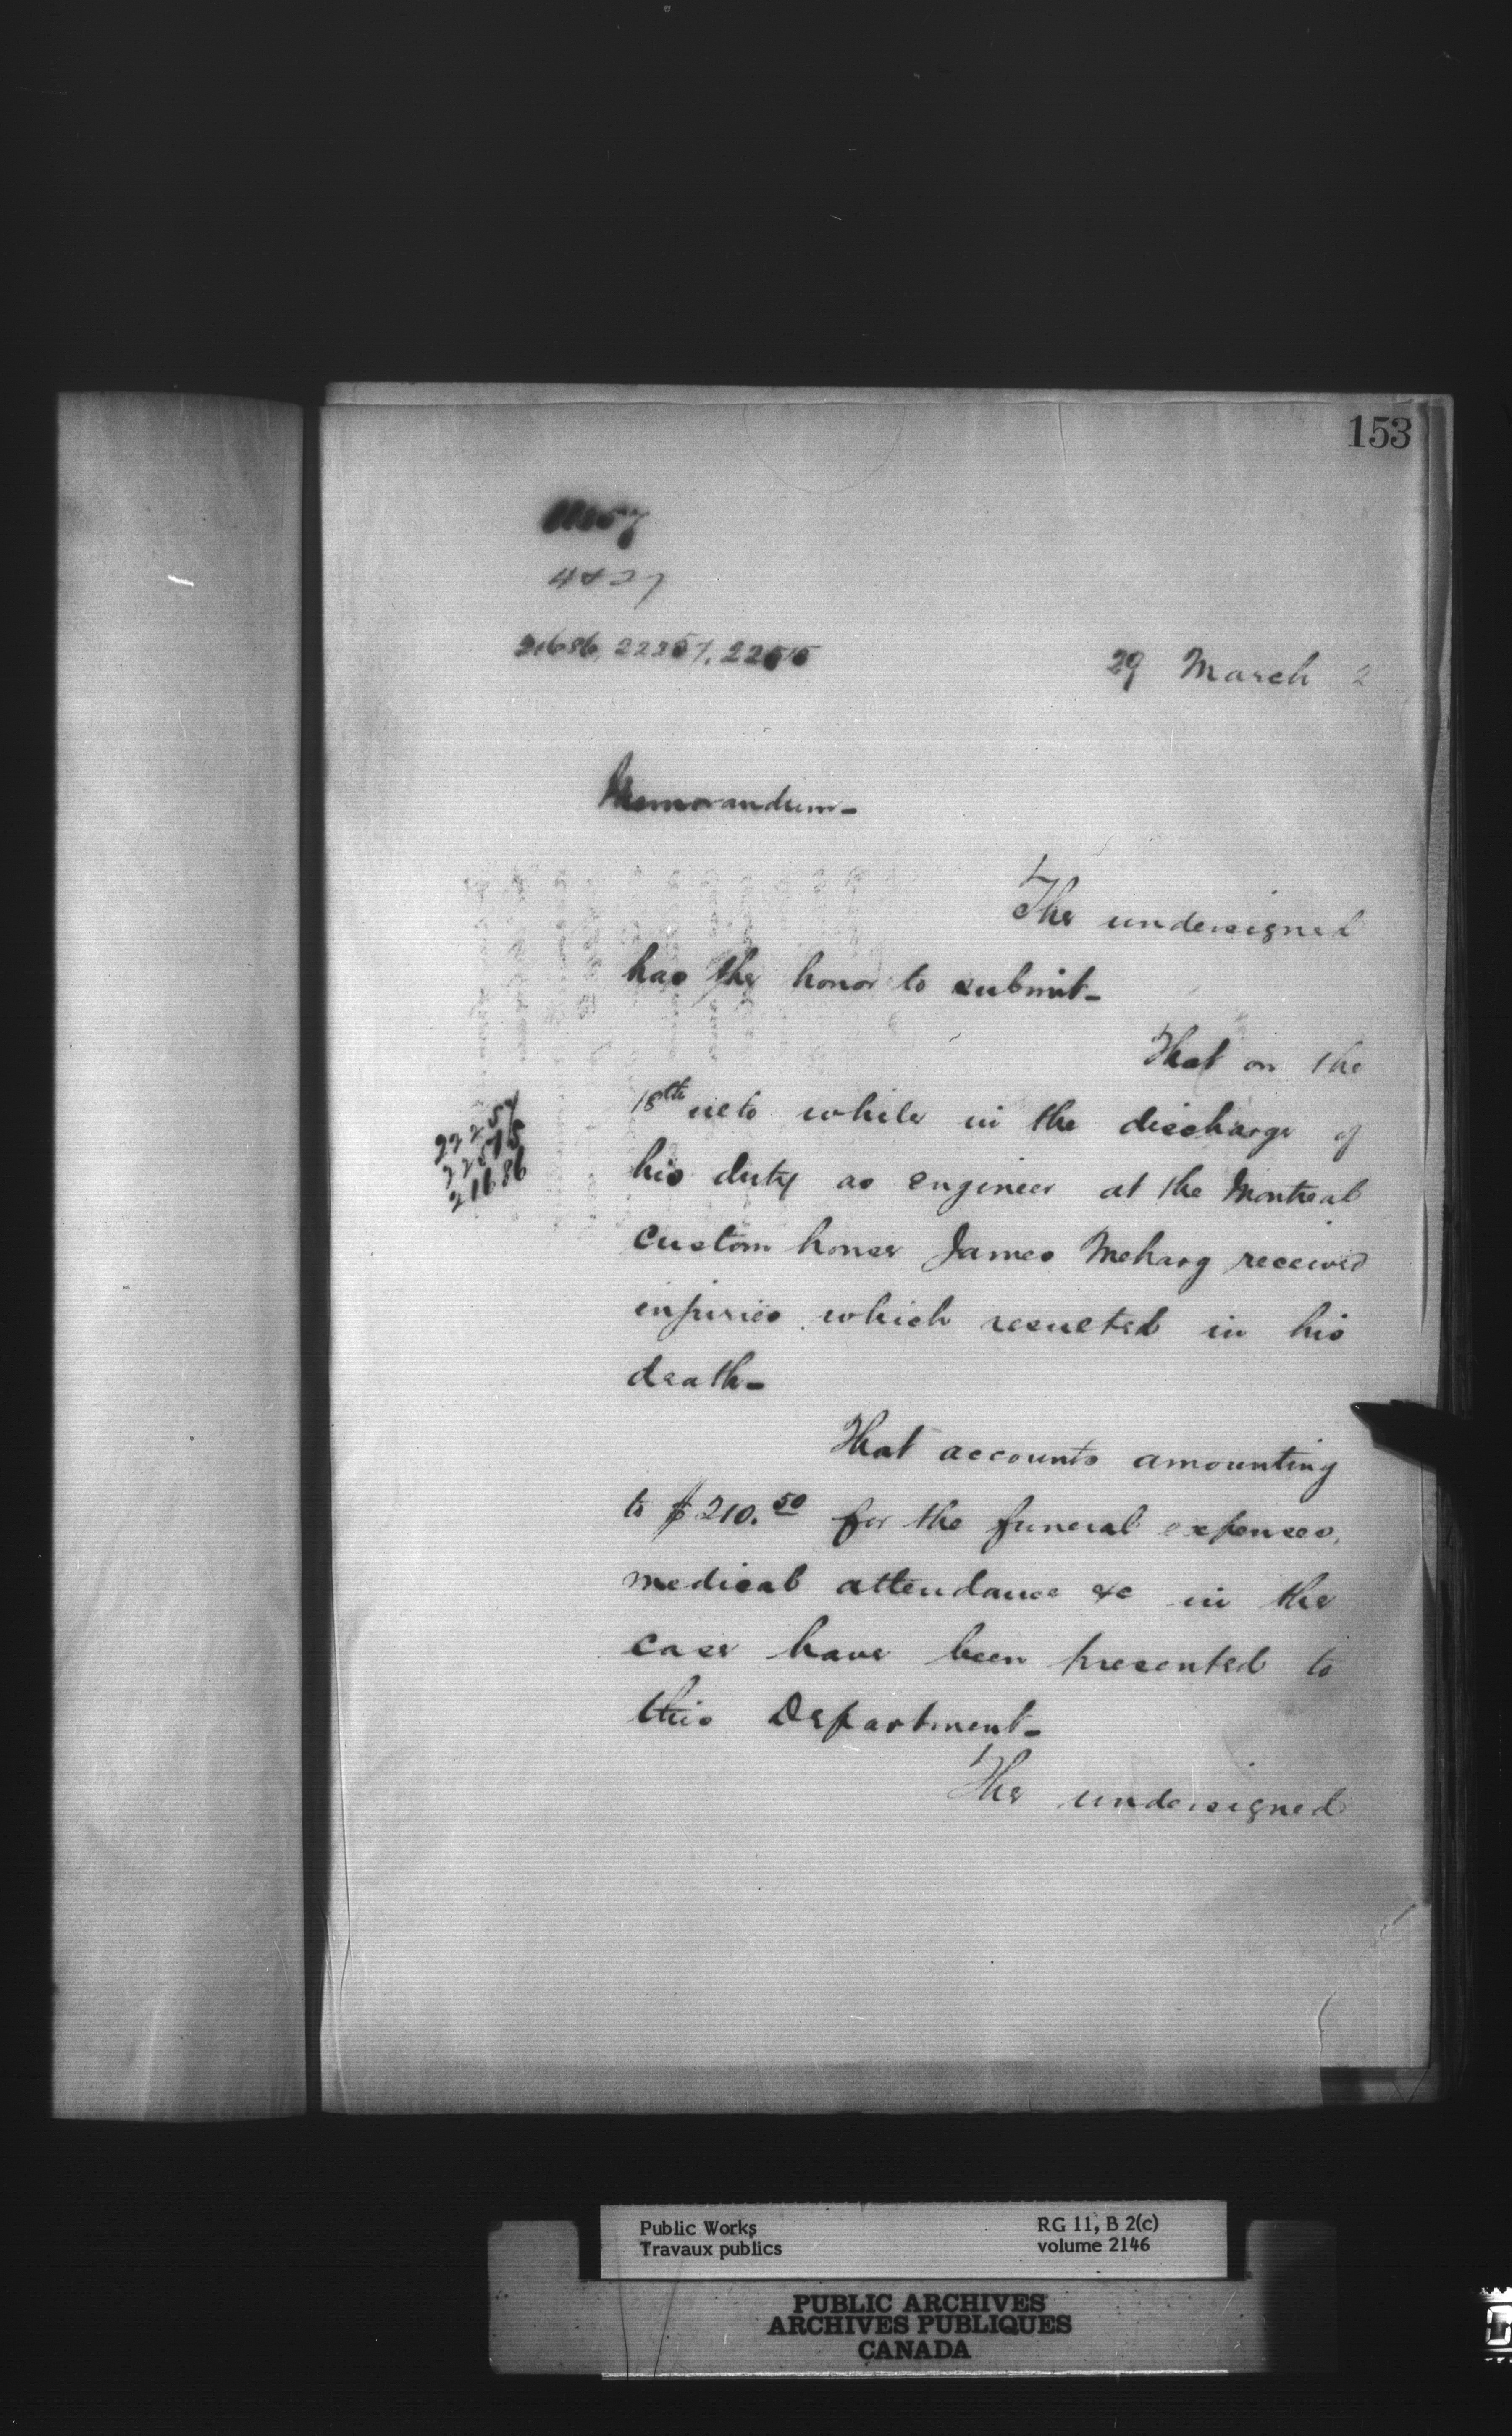 153
4827
21686, 22257, 22575
29 March 2
Memorandum-
The undersigned
has the honor to submit-
That on the
18th ulto while in the discharge of
his duty as engineer at the Montreal
Custom house James Meharg received
injuries which resulted in his
death-
22257
22575
21686
That accounts amounting
to $210.50 for the funeral expenses,
medical attendance &c in the
case have been presented to
this Department-
The undersigned
Public Works
Travaux publics
RG 11, B 2(c)
volume 2146
PUBLIC ARCHIVES
ARCHIVES PUBLIQUES
CANADA